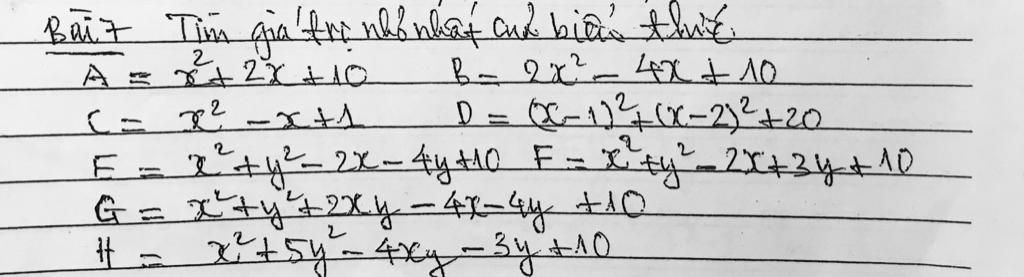 Bài 7 Tìm giá trị nhỏ nhất của biểu thức.
A = x² + 2x + 10 B = 2x² - 4x + 10
C = x² - x + 1 D = (x-1)² + (x-2)² + 20
E = x² + y² - 2x - 4y + 10 F = x² + y² - 2x + 3y + 10
G = x² + y² + 2xy - 4x - 4y + 10
H = x² + 5y² - 4xy - 3y + 10